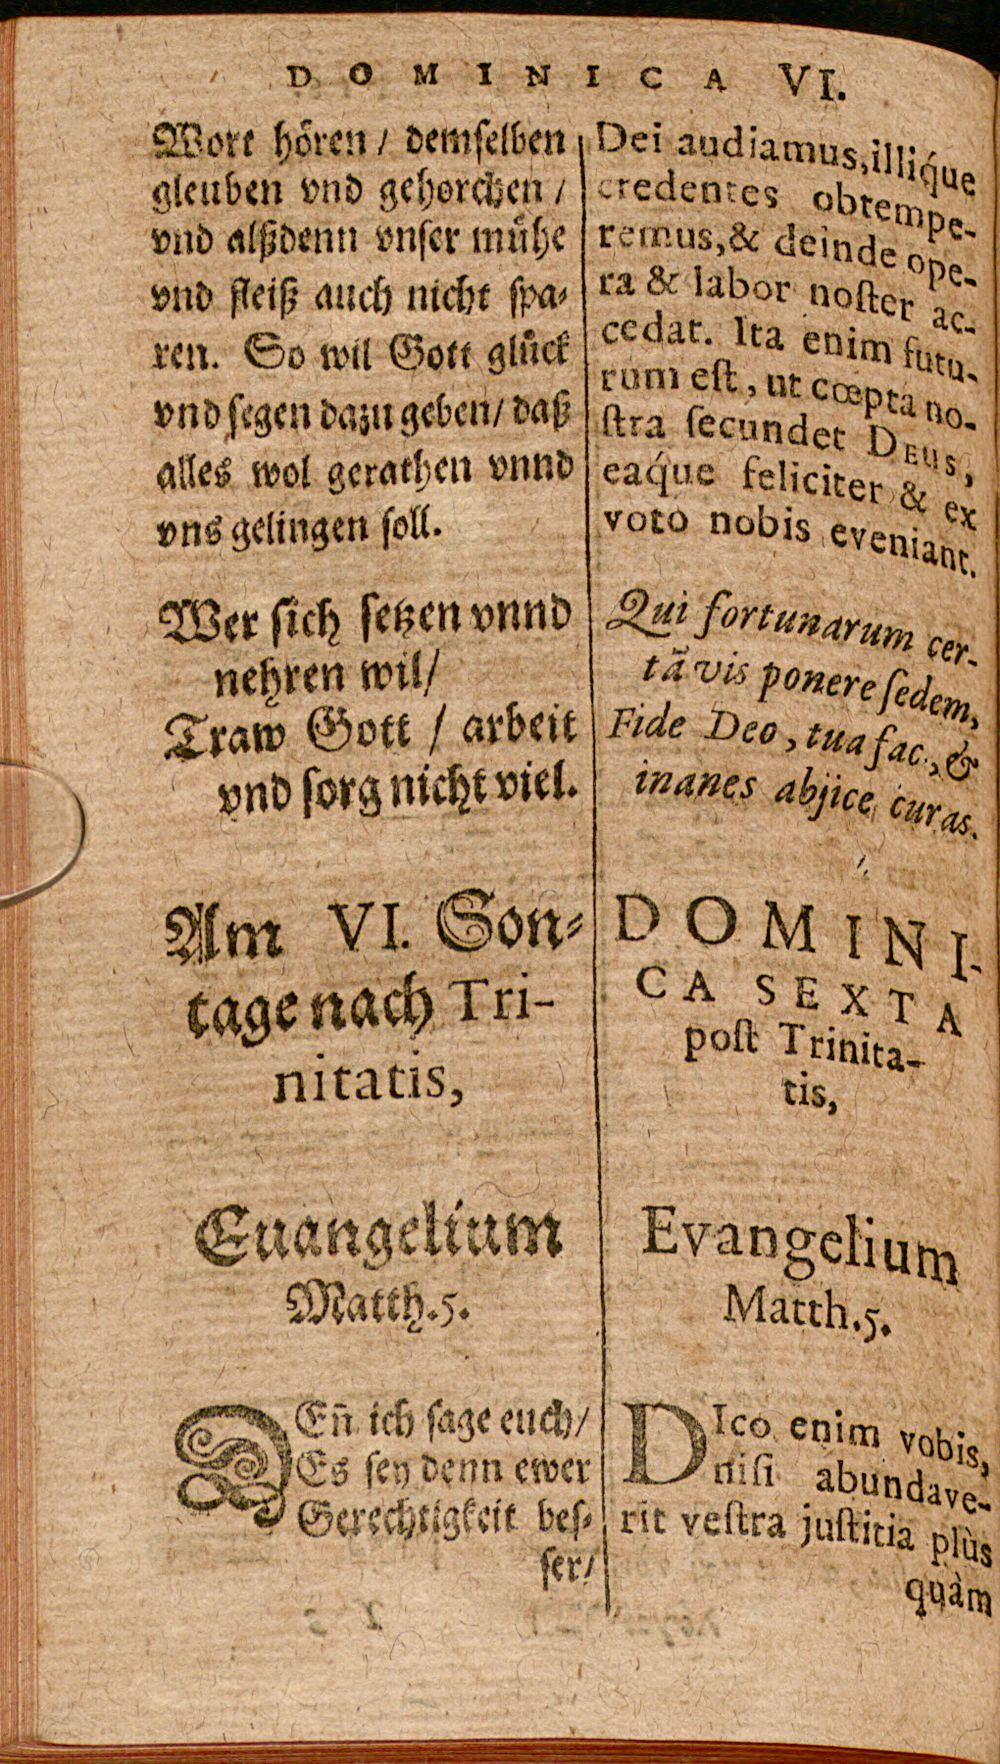 DOMINICA VI.
Wort hören / demselben
gleuben vnd gehorchen /
vnd alßdenn vnser mühe
vnd fleiß auch nicht spa-
ren. So wil Gott glück
vnd segen dazu geben / daß
alles wol gerathen vnnd
vns gelingen soll.
Wer sich setzen vnnd
nehren wil /
Traw Gott / arbeit
vnd sorg nicht viel.
Am VI. Son-
tage nach Tri-
nitatis,
Euangelium
Matth. 5.
DEn̄ ich sage euch /
Es sey denn ewer
Gerechtigkeit bes-
ser /
Dei audiamus, illiq́ue
credentes obtempe-
remus, & deinde ope-
ra & labor noster ac-
cedat. Ita enim futu-
rum est, ut cœpta no-
stra secundet DEUS,
eaq́ue feliciter & ex
voto nobis eveniant.
Qui fortunarum cer-
tã vis ponere sedem,
Fide Deo, tua fac, &
inanes abjice curas.
DOMINI-
CA SEXTA
post Trinita-
tis,
Evangelium
Matth. 5.
DIco enim vobis,
nisi abundave-
rit vestra justitia plùs
quàm